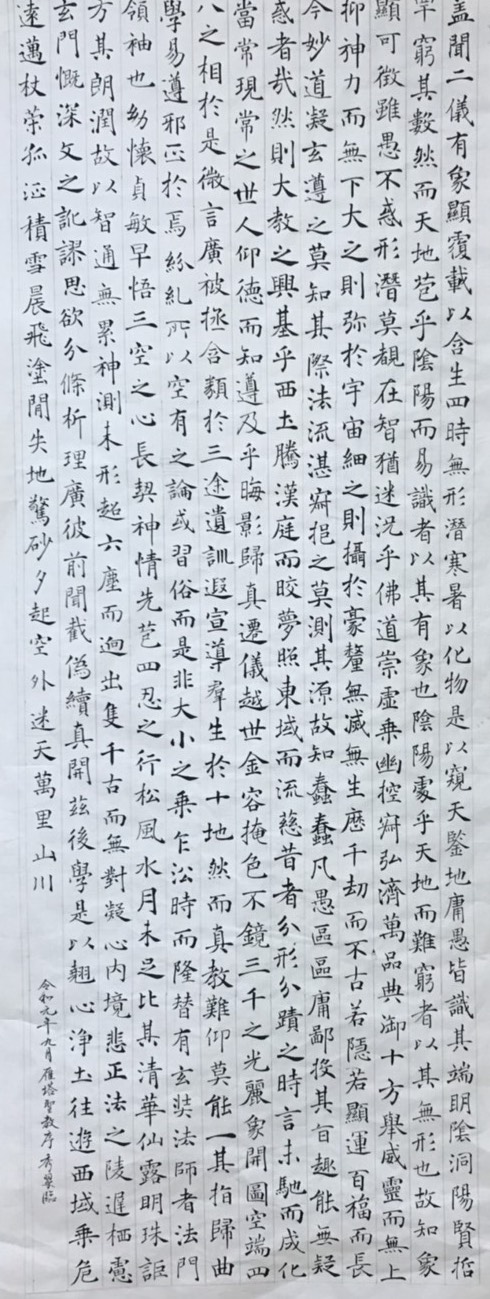 盖聞二儀有象顯覆載以含生四時無形潛寒暑以化物是以窺天鑒地庸愚皆識其端明陰洞陽賢哲
罕窮其數然而天地苞乎陰陽而易識者以其有象也陰陽處乎天地而難窮者以其無形也故知象
顯可徵雖愚不惑形潛莫覩在智猶迷況乎佛道崇虛乘幽控寂弘濟萬品典御十方舉威靈而無上
抑神力而無下大之則弥於宇宙細之則攝於豪釐無滅無生歷千劫而不古若隱若顯運百福而長
今妙道凝玄遵之莫知其際法流湛寂挹之莫測其源故知蠢蠢凡愚區區庸鄙投其旨趣能無疑
惑者哉然則大教之興基乎西土騰漢庭而皎夢照東域而流慈昔者分形分蹟之時言未馳而成化
當常現常之世人仰德而知遵及乎晦影歸真遷儀越世金容掩色不鏡三千之光麗象開圖空端四
八之相於是微言廣被拯含類於三途遺訓遐宣導羣生於十地然而真教難仰莫能一其指歸曲
學易遵邪正於焉紛糺所以空有之論或習俗而是非大小之乘乍沿時而隆替有玄奘法師者法門
領袖也幼懷貞敏早悟三空之心長契神情先苞四忍之行松風水月未足比其清華仙露明珠詎
方其朗潤故以智通無累神測未形超六塵而迥出隻千古而無對凝心内境悲正法之陵遲栖慮
玄門慨深文之訛謬思欲分條析理廣彼前聞截偽續真開茲後學是以翹心淨土往遊西域乘危
遠邁杖策孤征積雪晨飛塗閒失地驚砂夕起空外迷天萬里山川
令和元年九月 雁塔聖教序 秀臨